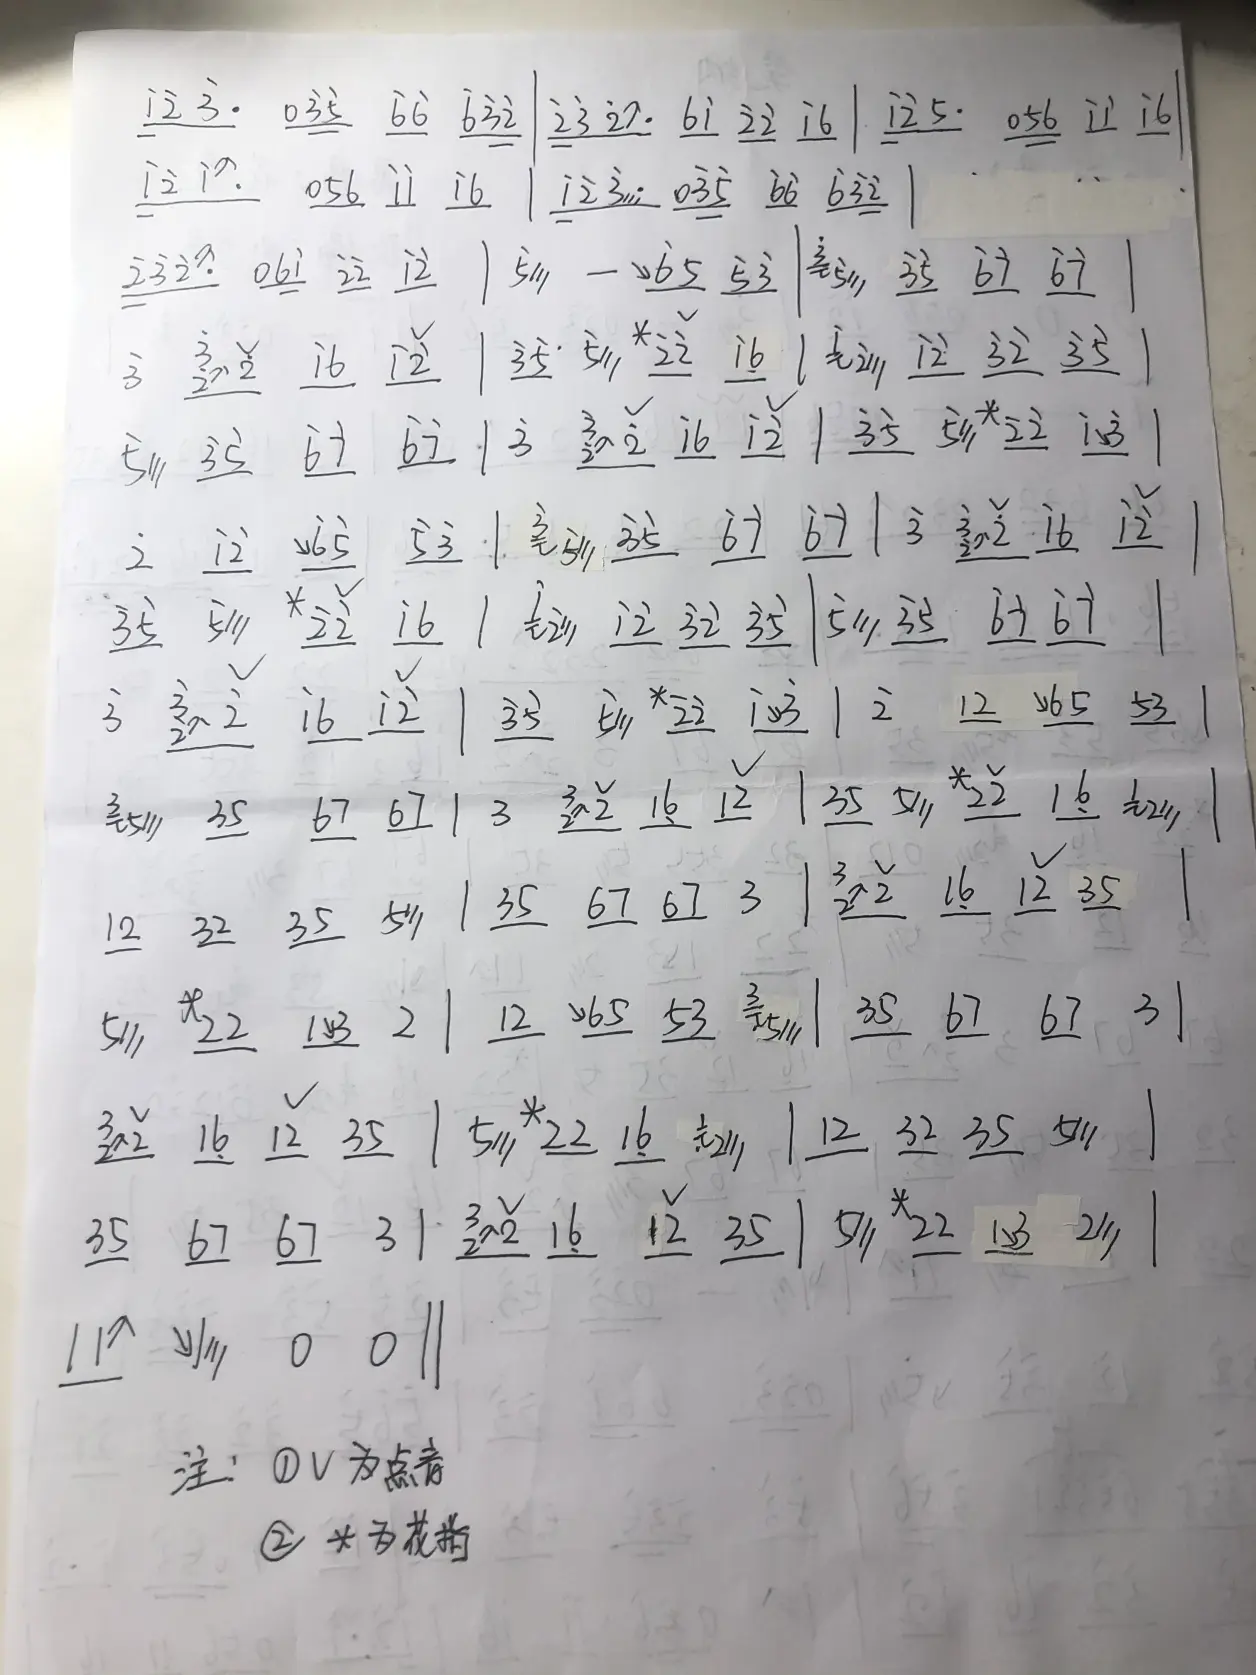 i̇2̇ 3̇· 03̇5̇ 6̇6̇ 6̇3̇2̇ | 2̇3̇ 2̇↗· 6i̇ 2̇2̇ i̇6 | i̇2̇ 5· 056 i̇i̇ i̇6 |
i̇2̇ i̇↗· 056 i̇i̇ i̇6 | i̇2̇ 3̇///· 03̇5̇ 6̇6̇ 6̇3̇2̇ |
2̇3̇2̇↗· 06i̇ 2̇2̇ i̇2̇ | 5̇/// — ↘6̇5̇ 5̇3̇ | 3̇5̇/// 3̇5̇ 6̇7̇ 6̇7̇ |
3̇ 3̇2̇↗2̇∨ i̇6 i̇2̇∨ | 3̇5̇ 5̇/// *2̇2̇∨ i̇6 | i̇2̇/// i̇2̇ 3̇2̇ 3̇5̇ |
5̇/// 3̇5̇ 6̇7̇ 6̇7̇ | 3̇ 3̇2̇↗2̇∨ i̇6 i̇2̇∨ | 3̇5̇ 5̇/// *2̇2̇ i̇↘3̇ |
2̇ i̇2̇ ↘6̇5̇ 5̇3̇ | 3̇5̇/// 3̇5̇ 6̇7̇ 6̇7̇ | 3̇ 3̇2̇↗2̇∨ i̇6 i̇2̇∨ |
3̇5̇ 5̇/// *2̇2̇∨ i̇6 | i̇2̇/// i̇2̇ 3̇2̇ 3̇5̇ | 5̇/// 3̇5̇ 6̇7̇ 6̇7̇ |
3̇ 3̇2̇↗2̇∨ i̇6 i̇2̇∨ | 3̇5̇ 5̇/// *2̇2̇ i̇↘3̇ | 2̇ 12 ↘65 53 |
35/// 35 67 67 | 3 32↗2∨ 16̣ 12∨ | 35 5/// *22∨ 16̣ 12/// |
12 32 35 5/// | 35 67 67 3 | 32↗2∨ 16̣ 12∨ 35 |
5/// *22 1↘3 2 | 12 ↘65 53 35/// | 35 67 67 3 |
32↗2∨ 16̣ 12∨ 35 | 5/// *22 16̣ 12/// | 12 32 35 5/// |
35 67 67 3 | 32↗2∨ 16̣ 12∨ 35 | 5/// *22 1↘3 2/// |
11↗ ↘1/// 0 0 ‖
注: ①∨为点音
② *为花指